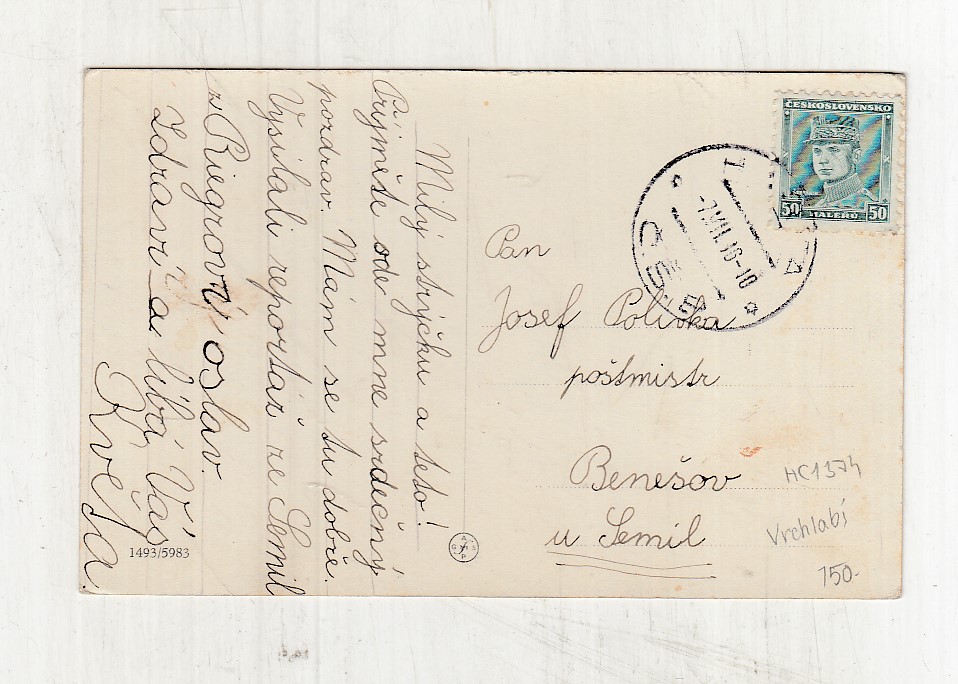 Milý strýčku a teto!
Prijměte ode mne srdečný
pozdrav. Mám se tu dobře.
Vysílali reportáž ze Semil
z Riegrových oslav.
Zdraví a líbá Vás
Květa.
1493/5983
ČESKOSLOVENSKO
50 MALERO 50
-7.VII.
Pan
Josef Polívka
poštmistr
Benešov
u Semil
HC1374
Vrchlabí
150-